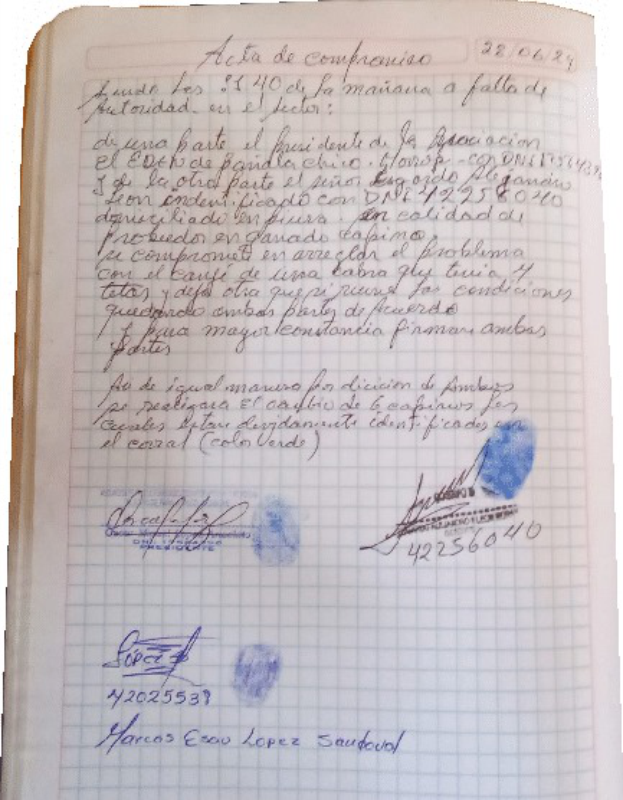 Acta de compromiso
22/06/24
Siendo las 11 40 de la mañana a falta de
Autoridad en el sector:
de una parte el Presidente de la Asociacion
El EDEN de Pañala chico. Morrop - con DNI
y de la otra parte el señor Alejandro
con indentificado con DNI 42256040
domiciliado en piura en calidad de
Probedor en ganado Capino.
se compromete en arreglar el problema
con el canje de una cabra que tenia 4
tetas y deja otra que si reune las condiciones
quedando ambas partes de Acuerdo
y para mayor constancia firman ambas
partes
de igual manera por dicicion de Ambos
se realizara El cambio de 6 capinos los
cuales estan dividamente identificados en
el corral (color verde)
PRESIDENTE
42256040
42025539
Marcos Esau Lopez Sandoval